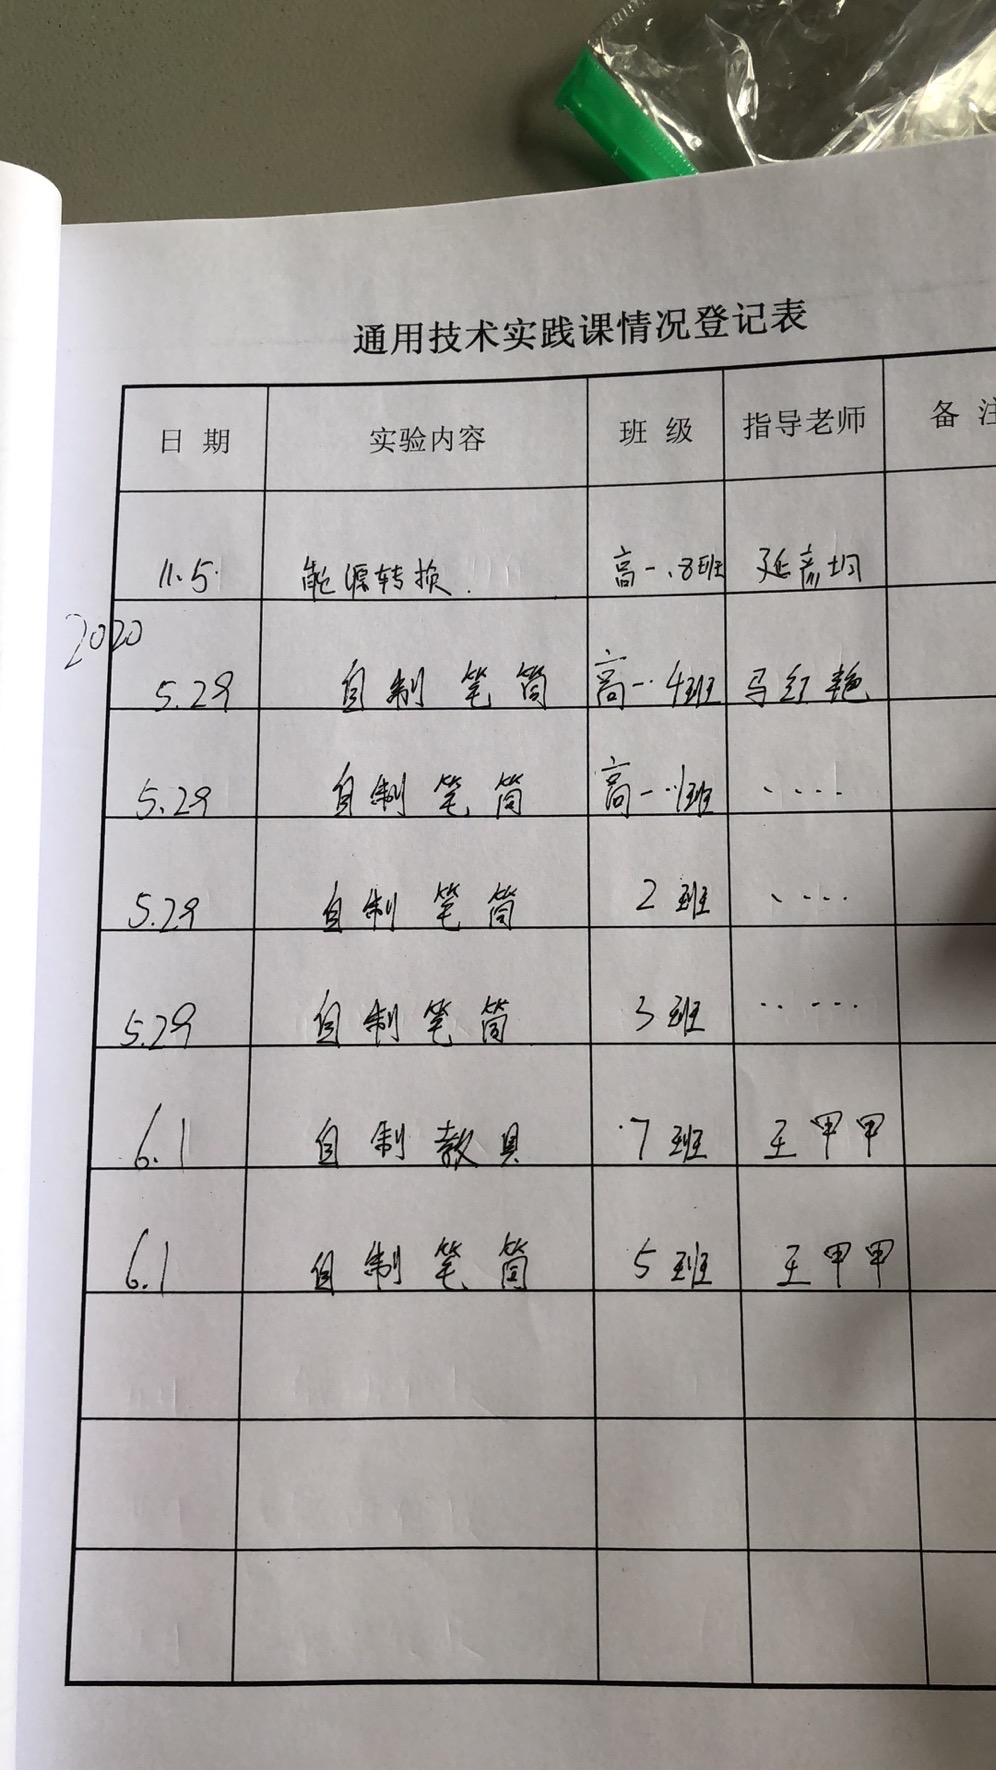 通用技术实践课情况登记表
日 期 实验内容 班 级 指导老师 备 注
11.5. 能源转换. 高一.8班 延彦均
2020
5.29 自制笔筒 高一·4班 马红艳
5.29 自制笔筒 高一·1班 ····
5.29 自制笔筒 2班 ····
5.29 自制笔筒 3班 ·····
6.1 自制教具 7班 王甲甲
6.1 自制笔筒 5班 王甲甲